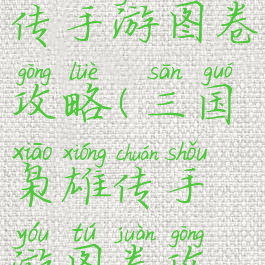 传手游图卷
gōng lüè sān guó
攻略(三国
xiāo xióng chuán shǒu
枭雄传手
yóu tú juàn gōng
游图卷攻